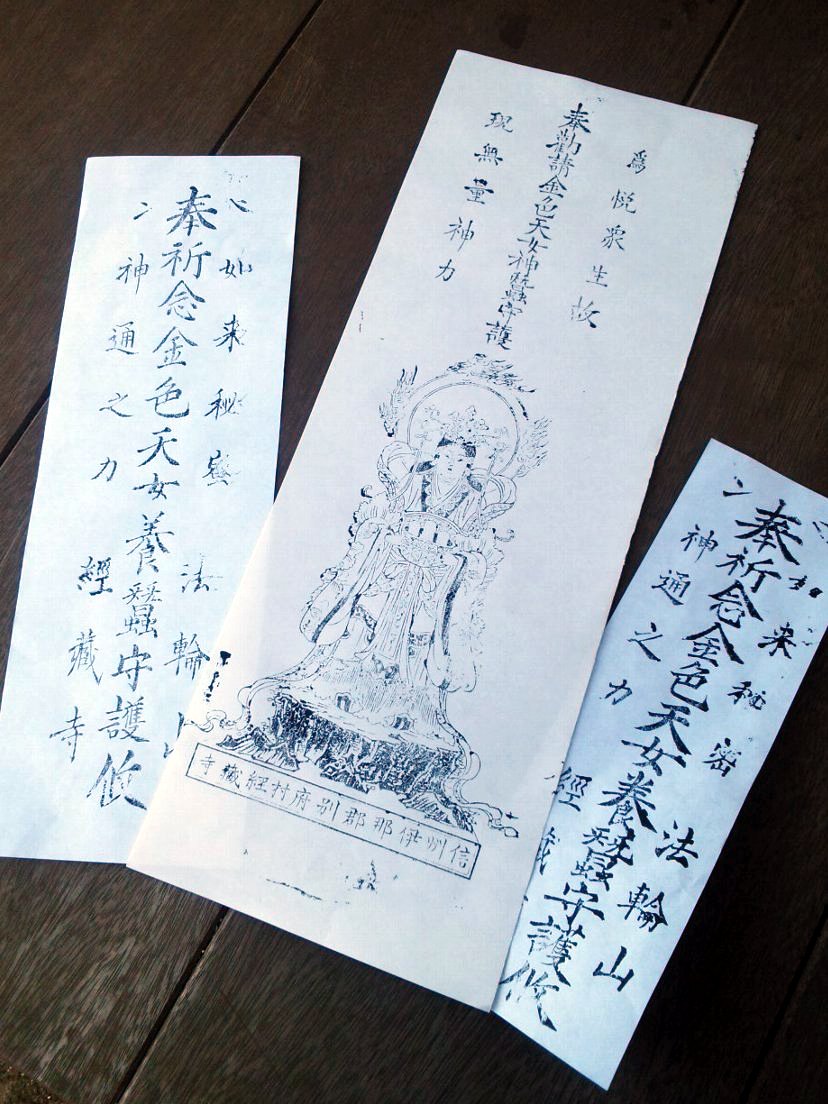 如来秘密 法輪山
奉祈念金色天女養蠶守護攸
神通之力 經藏寺
爲悦衆生故
奉勸請金色天女神蠶守護
現無量神力
信州伊那郡別府村經藏寺
如来秘密 法輪山
奉祈念金色天女養蠶守護攸
神通之力 經藏